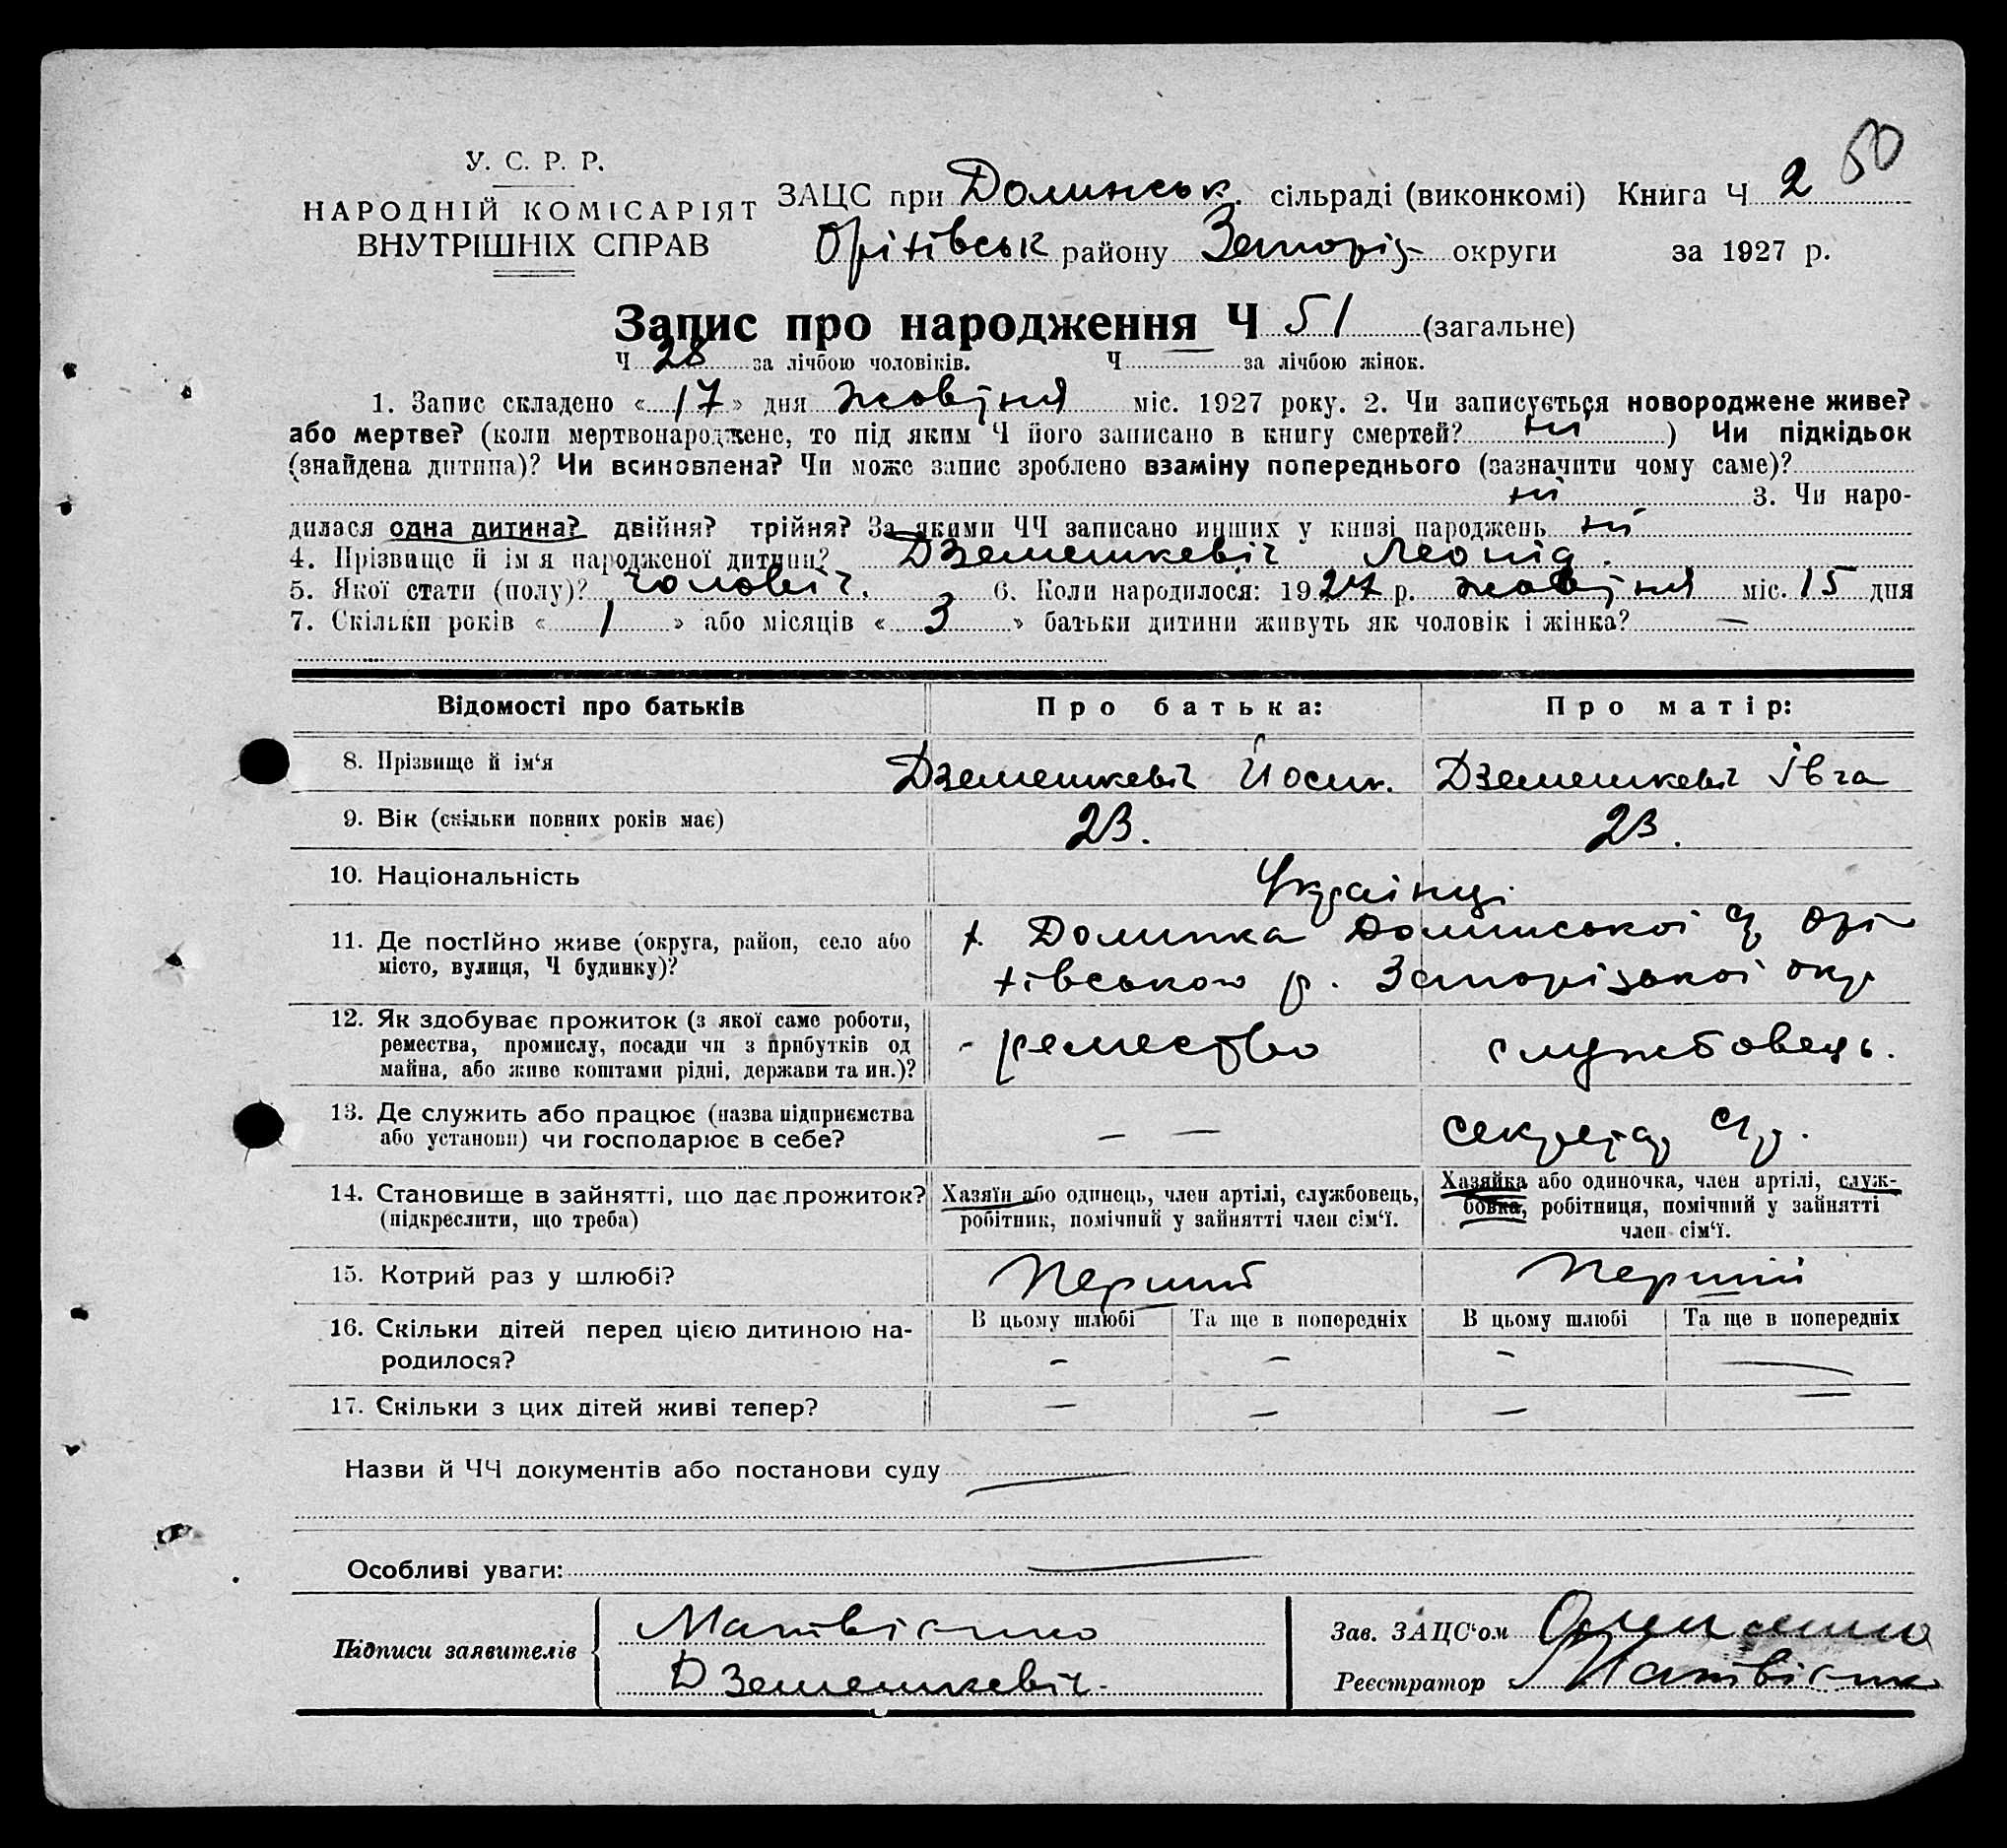 50
У. С. Р. Р.
НАРОДНІЙ КОМІСАРІЯТ
ВНУТРІШНІХ СПРАВ
ЗАЦС при Долинськ. сільраді (виконкомі) Книга Ч 2
Оріхівськ району Запоріз округи за 1927 р.
Запис про народження Ч 51 (загальне)
Ч 28 за лічбою чоловіків. Ч — за лічбою жінок.
1. Запис складено « 17 » дня жовтня міс. 1927 року. 2. Чи записується новороджене живе?
або мертве? (коли мертвонароджене, то під яким Ч його записано в книгу смертей? ні ) Чи підкідьок
(знайдена дитина)? Чи всиновлена? Чи може запис зроблено взаміну попереднього (зазначити чому саме)?
ні 3. Чи наро-
дилася одна дитина? двійня? трійня? За якими ЧЧ записано инших у книзі народжень ні
4. Прізвище й ім я народженої дитини? Дземешкевіч Леонід.
5. Якої стати (полу)? чоловіч. 6. Коли народилося: 1927 р. жовтня міс. 15 дня
7. Скільки років « 1 » або місяців « 3 » батьки дитини живуть як чоловік і жінка? —
Відомості про батьків Про батька: Про матір:
8. Прізвище й ім‘я Дземешкевіч Йосип. Дземешкевіч Івга
9. Вік (скільки повних років має) 23. 23.
10. Національність Українці.
11. Де постійно живе (округа, район, село або х. Долинка Долинської с/р Орі
місто, вулиця, Ч будинку)? хівського р. Запорізької окр.
12. Як здобуває прожиток (з якої саме роботи,
ремества, промислу, посади чи з прибутків од - ремество службовець.
майна, або живе коштами рідні, держави та ин.)?
13. Де служить або працює (назва підприємства — — секретар с/р.
або установи) чи господарює в себе?
14. Становище в зайнятті, що дає прожиток? Хазяїн або одинець, член артілі, службовець, Хазяйка або одиночка, член артілі, служ-
(підкреслити, що треба) робітник, помічний у зайнятті член сім‘ї. бовка, робітниця, помічний у зайнятті
член сім‘ї.
15. Котрий раз у шлюбі? Перший Перший
16. Скільки дітей перед цією дитиною на- В цьому шлюбі Та ще в попередніх В цьому шлюбі Та ще в попередніх
родилося? — — — —
17. Скільки з цих дітей живі тепер? — — — —
Назви й ЧЧ документів або постанови суду —
Особливі уваги: —
Підписи заявителів Матвієнко
Дземешкевіч.
Зав. ЗАЦС‘ом
Реєстратор Матвієнко